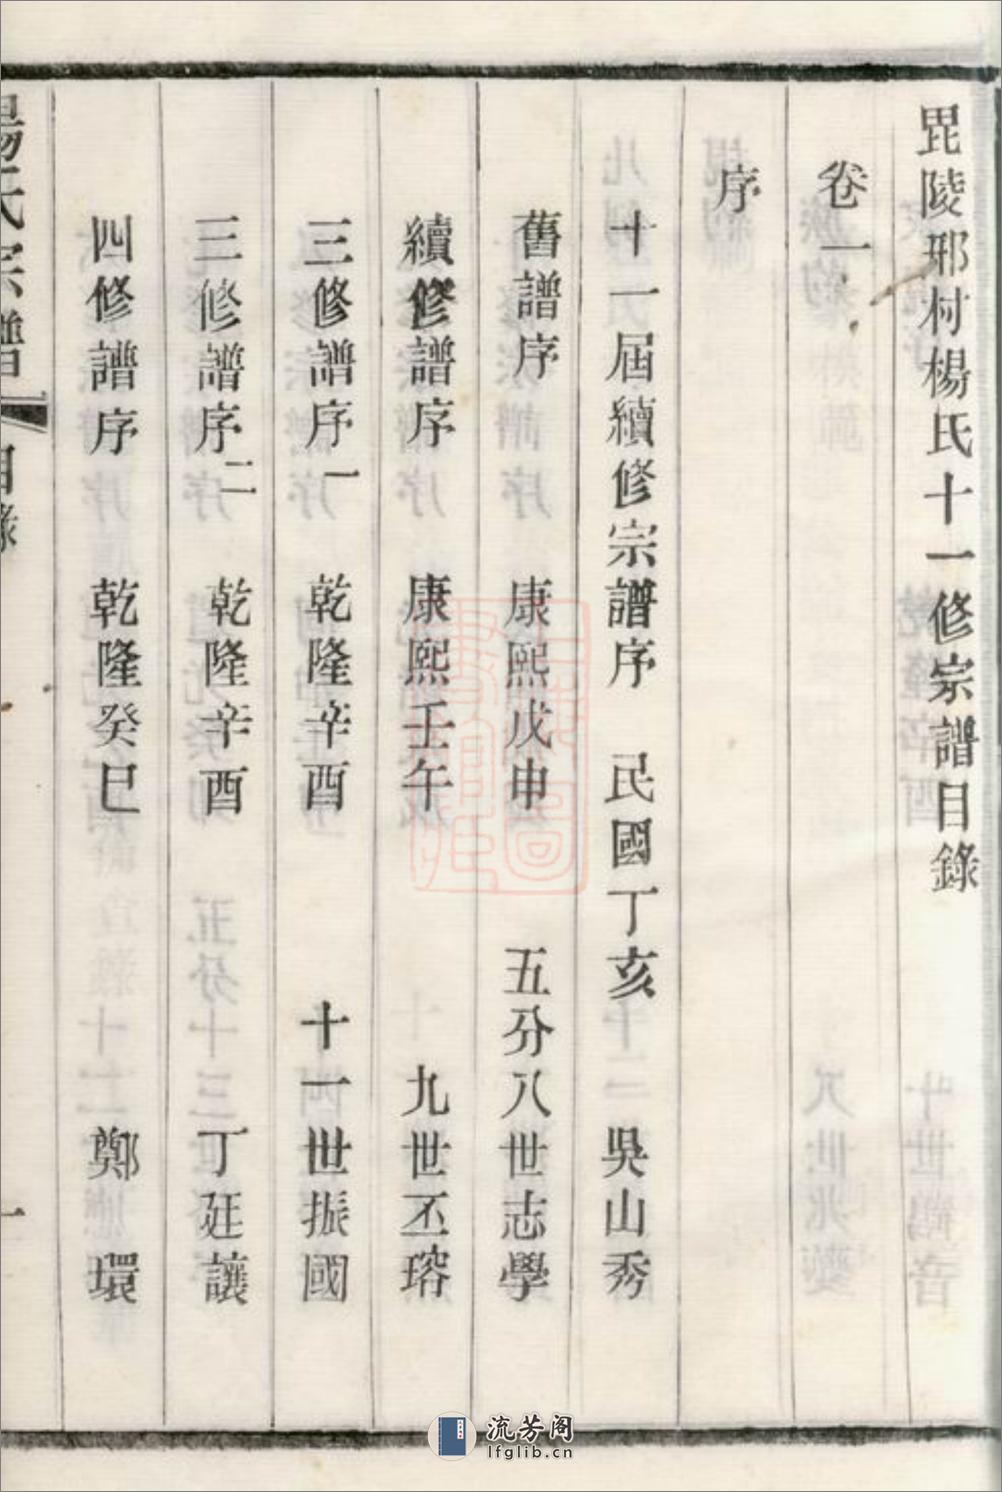 毘陵邢村楊氏十一修宗譜目錄
卷一
序
十一屆續修宗譜序 民國丁亥 吳山秀
舊譜序 康熙戊申 五分八世志學
續修譜序 康熙壬午 九世丕瑢
三修譜序一 乾隆辛酉 十一世振國
三修譜序二 乾隆辛酉 丁廷讓
四修譜序 乾隆癸巳 鄭環
楊氏宗譜 目錄 一
流芳阁
lfglib.cn